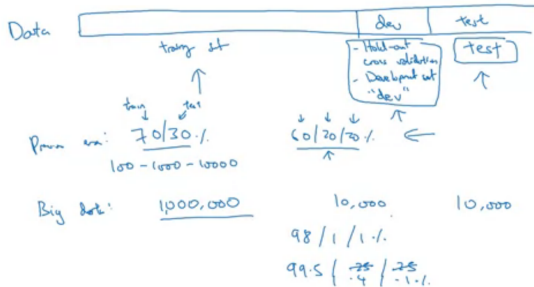 Data
dev test
training set
- Hold-out
cross validation
- Development set
"dev"
test
train test
Previous era: 70/30 %
60/20/20 %
100 - 1000 - 10000
Big data: 1,000,000 10,000 10,000
98 / 1 / 1 %
99.5 / .25 / .25
.4 / .1 %